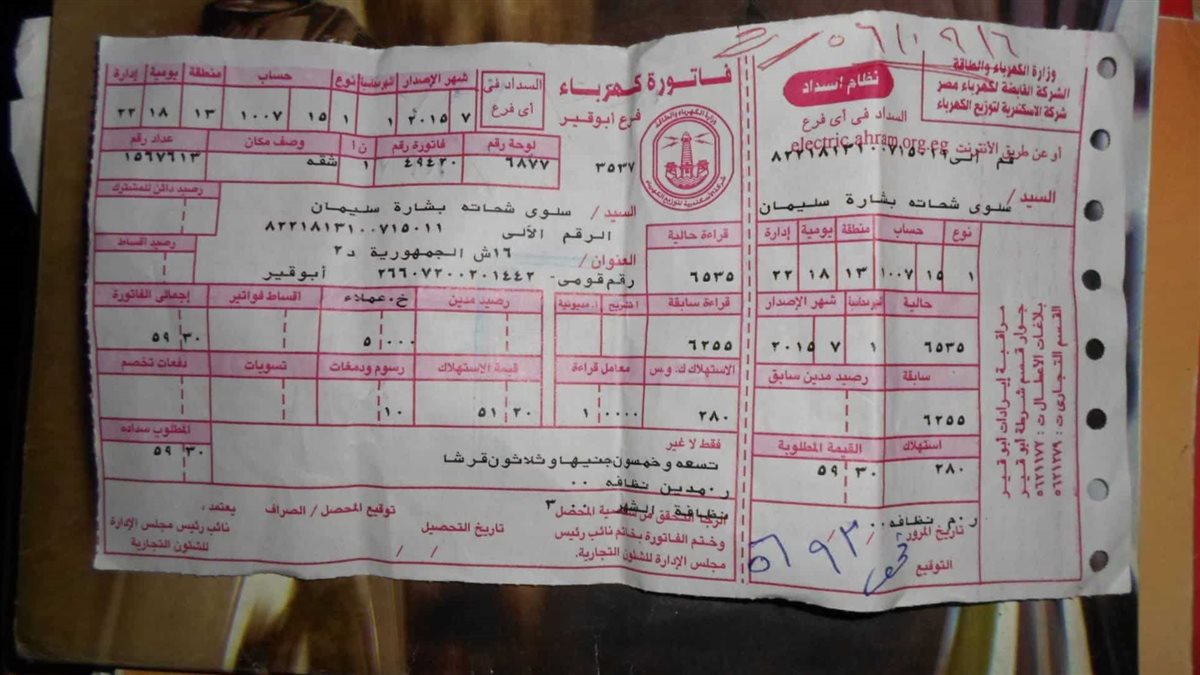 وزارة الكهرباء والطاقة
الشركة القابضة لكهرباء مصر
شركة الاسكندرية لتوزيع الكهرباء
نظام اسداد
السداد فى أى فرع
أو عن طريق الأنترنت electric.ahram.org.eg
السيد / سلوى شحاته بشارة سليمان
نوع حساب منطقة يومية إدارة
١ ١٥ ١٠٠٧ ١٣ ١٨ ٢٢
حالية شهر الإصدار
٦٥٣٥ ١ ٧ ٢٠١٥
سابقة رصيد مدين سابق
٦٢٥٥
استهلاك القيمة المطلوبة
٢٨٠ ٣٠ ٥٩
ر٠م نظافه ٠٠
تاريخ المرور
التوقيع
مراقبة إيرادات أبو قير
جوار قسم شرطة ابو قير
بلاغات الاعطال ت : ٥٦٢١١٧٧
القسم التجارى ت : ٥٦٢١٢٧٩
فاتورة كهرباء
فرع أبوقير
٣٥٣٧
السداد فى أى فرع
شهر الإصدار نوع حساب منطقة يومية إدارة
٧ ٢٠١٥ ١ ١ ١٥ ١٠٠٧ ١٣ ١٨ ٢٢
لوحة رقم فاتورة رقم ن ا وصف مكان عداد رقم
٦٨٧٧ ٤٩٤٢٠ ١ شقه ١٥٦٧٦١٣
رصيد دائن للمشترك
السيد / سلوى شحاته بشارة سليمان
الرقم الآلى ٨٢٢١٨١٣١٠٠٧١٥٠١١
العنوان / ١٦ش الجمهورية د٢
رقم قومى- ٢٦٦٠٧٢٠٠٢٠١٤٤٢ أبوقير
رصيد اقساط
قراءة حالية
٦٥٣٥
قراءة سابقة رصيد مدين خ٠عملاء اقساط فواتير إجمالى الفاتورة
٦٢٥٥ ٠٠٠ ٥ ٣٠ ٥٩
الاستهلاك ك.و.س معامل قراءة قيمة الاستهلاك رسوم ودمغات تسويات دفعات تخصم
٢٨٠ ٠٠٠٠ ١ ٢٠ ٥١ ١٠ ٣
المطلوب سداده
٣٠ ٥٩
فقط لا غير
تسعه وخمسون جنيها و ثلاثون قرشا
ر٠مدين نظافه ٠٠
نظافة الشهر ٣
الرجا التحقق من شخصية المحصل
وختم الفاتورة بخاتم نائب رئيس
مجلس الإدارة للشئون التجارية.
توقيع المحصل / الصراف
تاريخ التحصيل
/ /
يعتمد ،
نائب رئيس مجلس الإدارة
للشئون التجارية